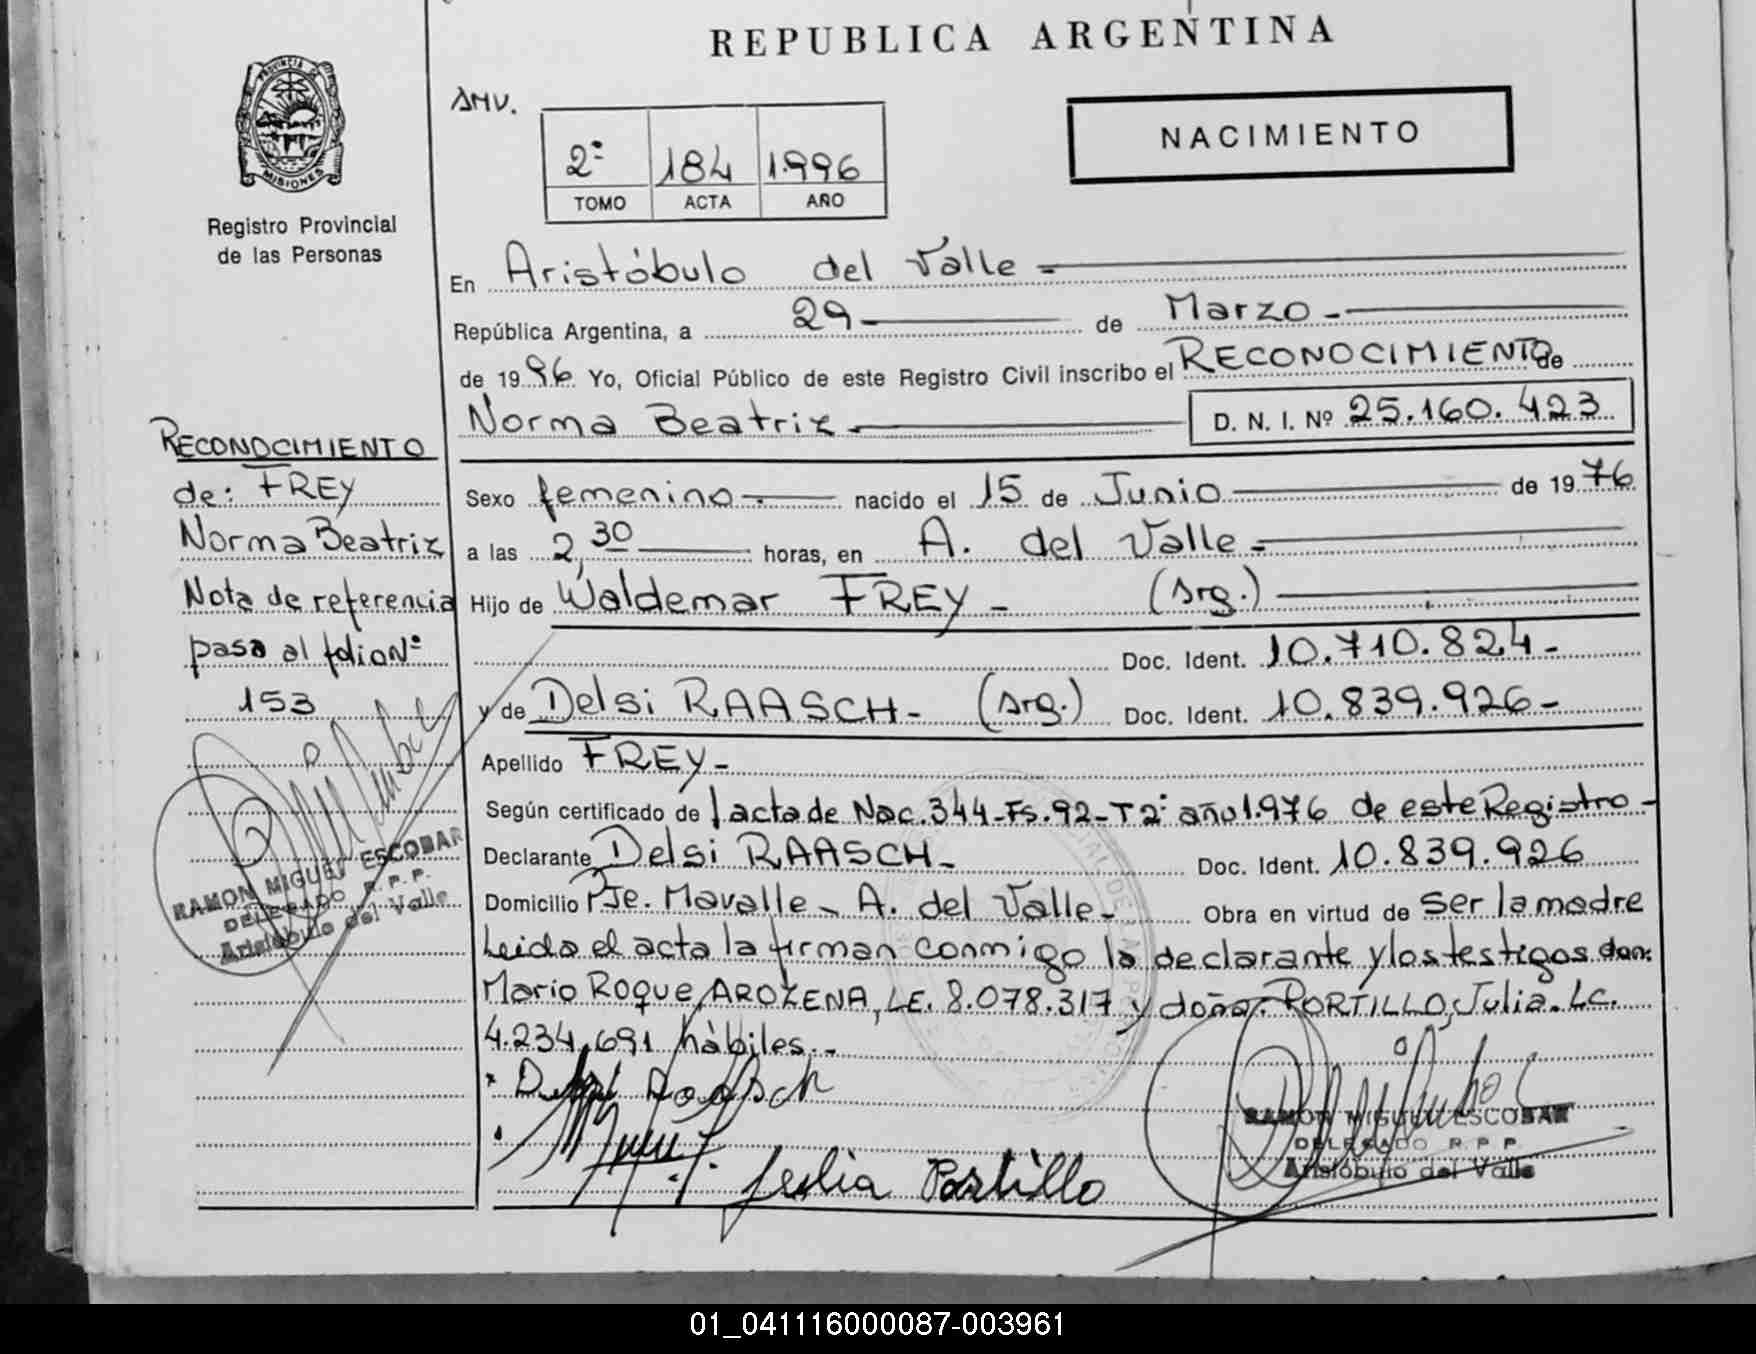 REPUBLICA ARGENTINA
PROVINCIA DE MISIONES
Registro Provincial
de las Personas
AMV.
2º 184 1.996
TOMO ACTA AÑO
NACIMIENTO
En Aristóbulo del Valle =
República Argentina, a 29 de Marzo -
de 1996 Yo, Oficial Público de este Registro Civil inscribo el RECONOCIMIENTO de
Norma Beatriz - D. N. I. Nº 25.160.423
Sexo femenino - nacido el 15 de Junio de 1976
a las 2,30 horas, en A. del Valle =
Hijo de Waldemar FREY - (Arg.)
Doc. Ident. 10.710.824-
y de Delsi RAASCH - (Arg.) Doc. Ident. 10.839.926-
Apellido FREY -
Según certificado de / acta de Nac. 344-Fs. 92-T 2º año 1.976 de este Registro -
Declarante Delsi RAASCH - Doc. Ident. 10.839.926
Domicilio Pje. Mavalle - A. del Valle - Obra en virtud de Ser la madre
Leida el acta la firman conmigo la declarante y los testigos don:
Mario Roque AROZENA, LE. 8.078.317 y doña: PORTILLO, Julia. LC.
4.234.691 hàbiles.-
RECONOCIMIENTO
de: FREY
Norma Beatriz
Nota de referencia
pasa al folio Nº
153
RAMON MIGUEL ESCOBAR
DELEGADO R. P. P.
Aristóbulo del Valle
Raasch
Portillo
RAMON MIGUEL ESCOBAR
DELEGADO R. P. P.
Aristóbulo del Valle
01_041116000087-003961